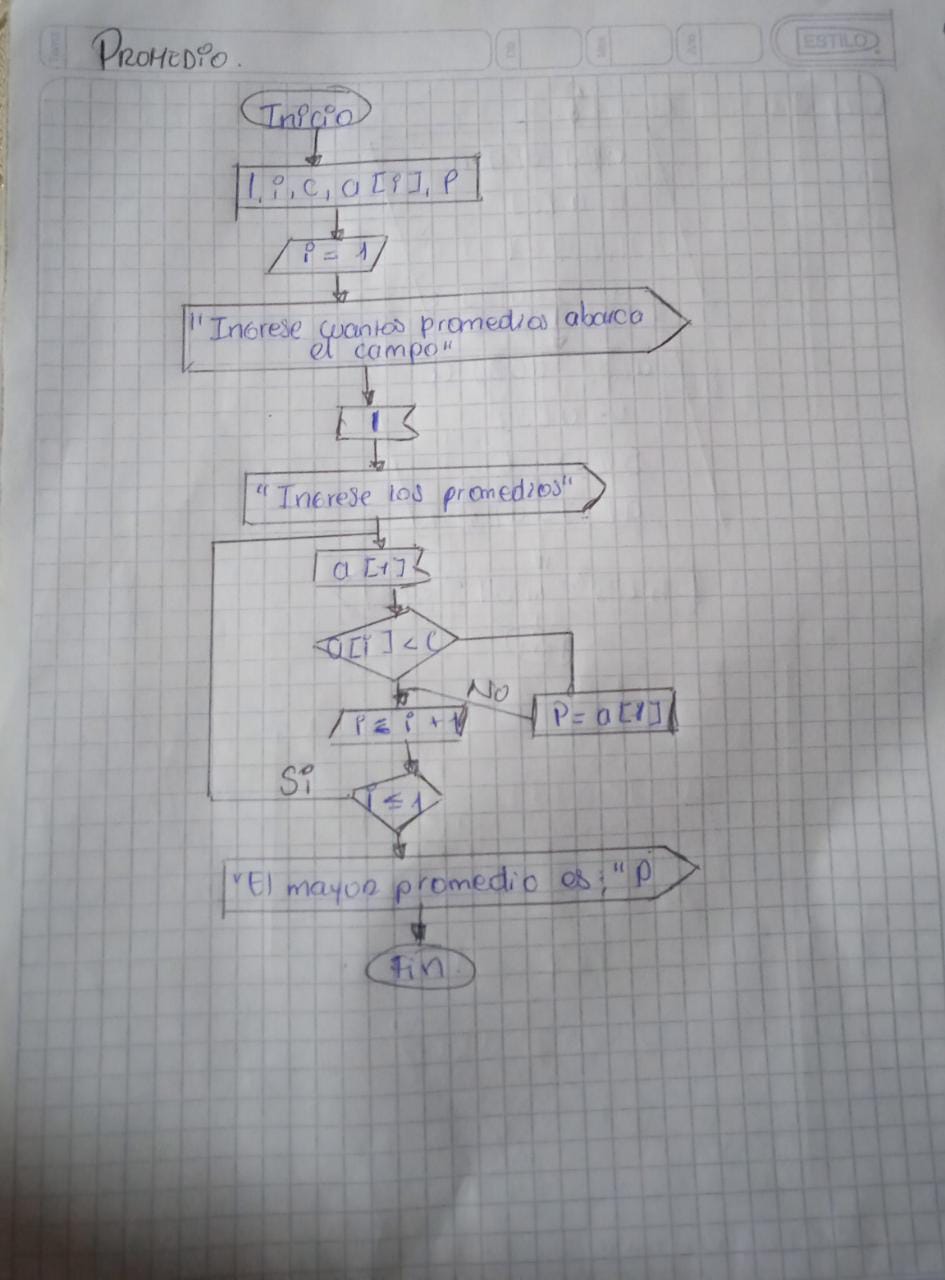 PROMEDIO.
ESTILO
Inicio
l, i, c, a [i], P
i = 1
"Ingrese cuantos promedios abarca
el campo"
l
"Ingrese los promedios"
a [1]
a[i] < C
No
P = a [1]
i = i + 1
Si
i ≤ 1
"El mayor promedio es; " P
Fin